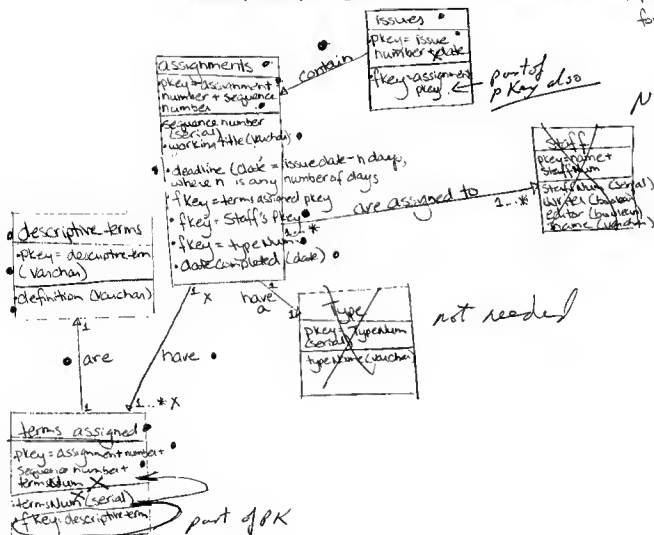 issues
pkey=issue
number+date
fkey=assignment
pkey
part of
pkey also
for
contain
assignments
pkey=assignment
number + sequence
number
sequence number
(serial)
working title (varchar)
deadline (date = issue date - n days,
where n is any number of days
fkey = terms assigned pkey
fkey = Staff's pkey
fkey = typeNum
date completed (date)
N
Staff
pkey=name+
staffNum
StaffNum (serial)
writer (boolean)
editor (boolean)
name (varchar)
are assigned to
1...*
1...*
descriptive terms
pkey = descriptive term
(varchar)
definition (varchar)
1
X
1
have
a
1
Type
pkey = TypeNum
(serial)
typeName (varchar)
not needed
are
have
1
1...* X
terms assigned
pkey = assignment number +
sequence number +
termsNum X
X
termsNum (serial)
fkey: descriptive term
part of PK